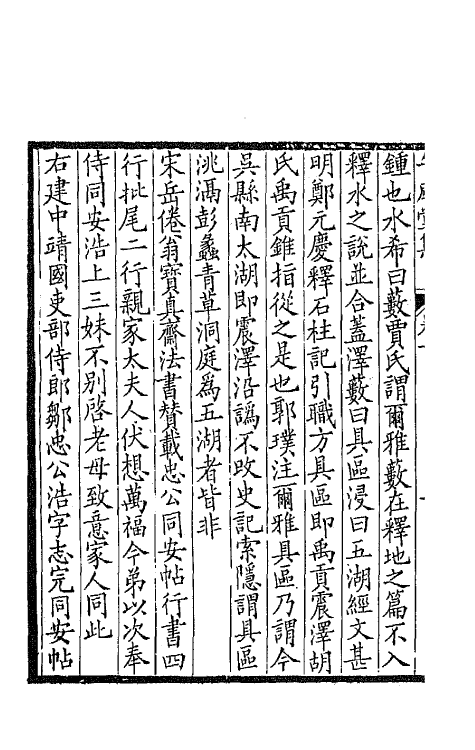 鍾也水希曰藪賈氏謂爾雅藪在釋地之篇不入
釋水之說並合蓋澤藪曰具區浸曰五湖經文甚
明鄭元慶釋石柱記引職方具區即禹貢震澤胡
氏禹貢錐指從之是也郭璞注爾雅具區乃謂今
吳縣南太湖即震澤沿譌不攷史記索隱謂具區
洮滆彭蠡青草洞庭為五湖者皆非
宋岳倦翁寶真齋法書贊載忠公同安帖行書四
行批尾二行親家太夫人伏想萬福今弟以次奉
侍同安浩上三妹不別啓老母致意家人同此
右建中靖國吏部侍郎鄒忠公浩字志完同安帖